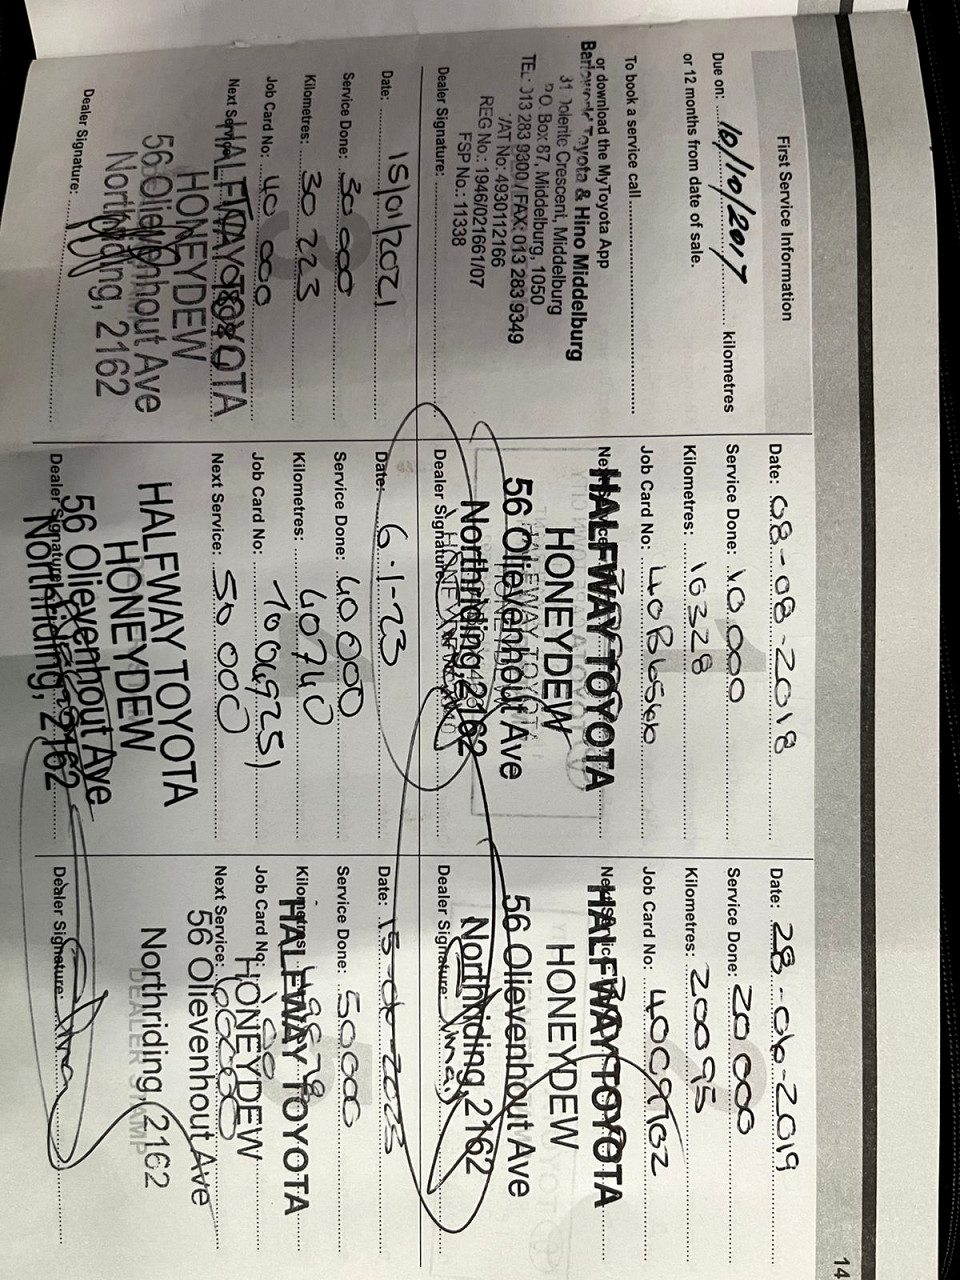 First Service Information
Due on: 10/10/2017 kilometres
or 12 months from date of sale.
To book a service call
or download the MyToyota App
Toyota & Hino Middelburg
31 Dolerite Crescent, Middelburg
P.O. Box 87, Middelburg, 1050
TEL: 013 283 9300 / FAX: 013 283 9349
VAT No: 4930112166
REG No.: 1946/021661/07
FSP No.: 11338
Dealer Signature:
Date: 08-08-2018
Service Done: 10.000
Kilometres: 16328
Job Card No:
HALFWAY TOYOTA
HONEYDEW
56 Olievenhout Ave
Northriding, 2162
Dealer Signature:
Date: 28-06-2019
Service Done: 20 000
Kilometres: 20095
Job Card No: 40C9762
HALFWAY TOYOTA
HONEYDEW
56 Olievenhout Ave
Northriding, 2162
Dealer Signature:
Date: 15/01/2021
Service Done: 30 000
Kilometres: 30 223
Job Card No: 40 000
Next Service:
HALFWAY TOYOTA
HONEYDEW
56 Olievenhout Ave
Northriding, 2162
Dealer Signature:
Date: 6.1-23
Service Done: 40 000
Kilometres: 40740
Job Card No:
Next Service: 50 000
HALFWAY TOYOTA
HONEYDEW
56 Olievenhout Ave
Northriding, 2162
Dealer Signature:
Date:
Service Done: 50000
Kilometres:
Job Card No:
Next Service:
HALFWAY TOYOTA
HONEYDEW
56 Olievenhout Ave
Northriding, 2162
DEALER STAMP
Dealer Signature:
14